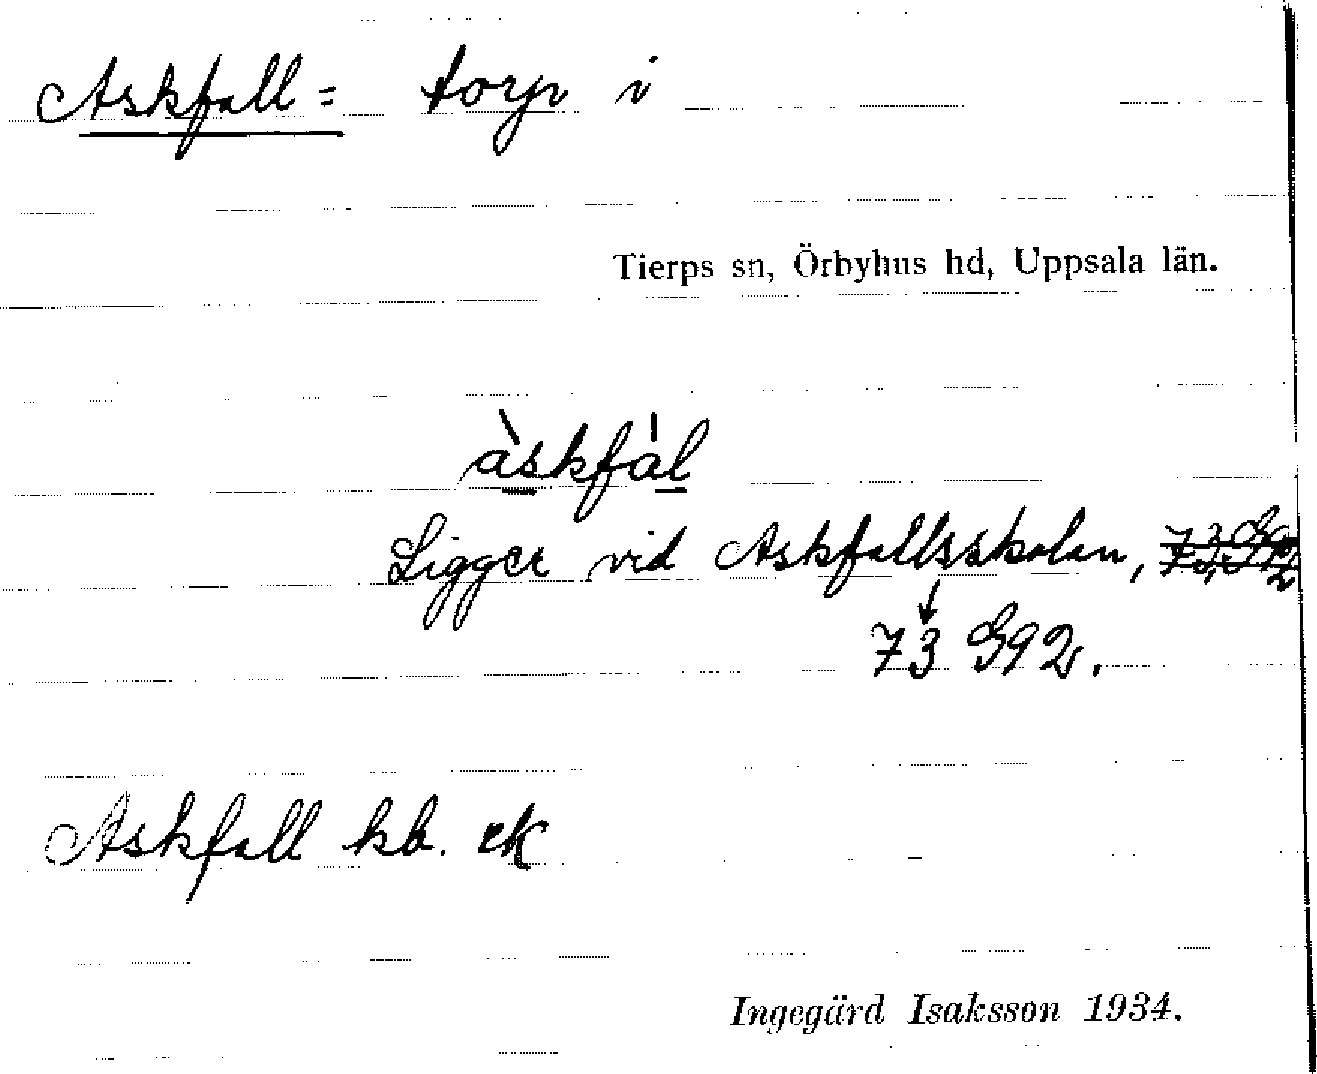 Askfall = torp i
Tierps sn, Örbyhus hd, Uppsala län.
àskfàl
Ligger vid Askfallsskolan,
73 G92.
Askfall kb. ek
Ingegärd Isaksson 1934.